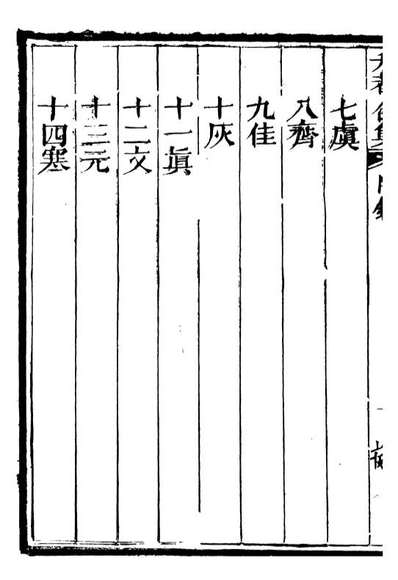 七虞
八齊
九佳
十灰
十一眞
十二文
十三元
十四寒